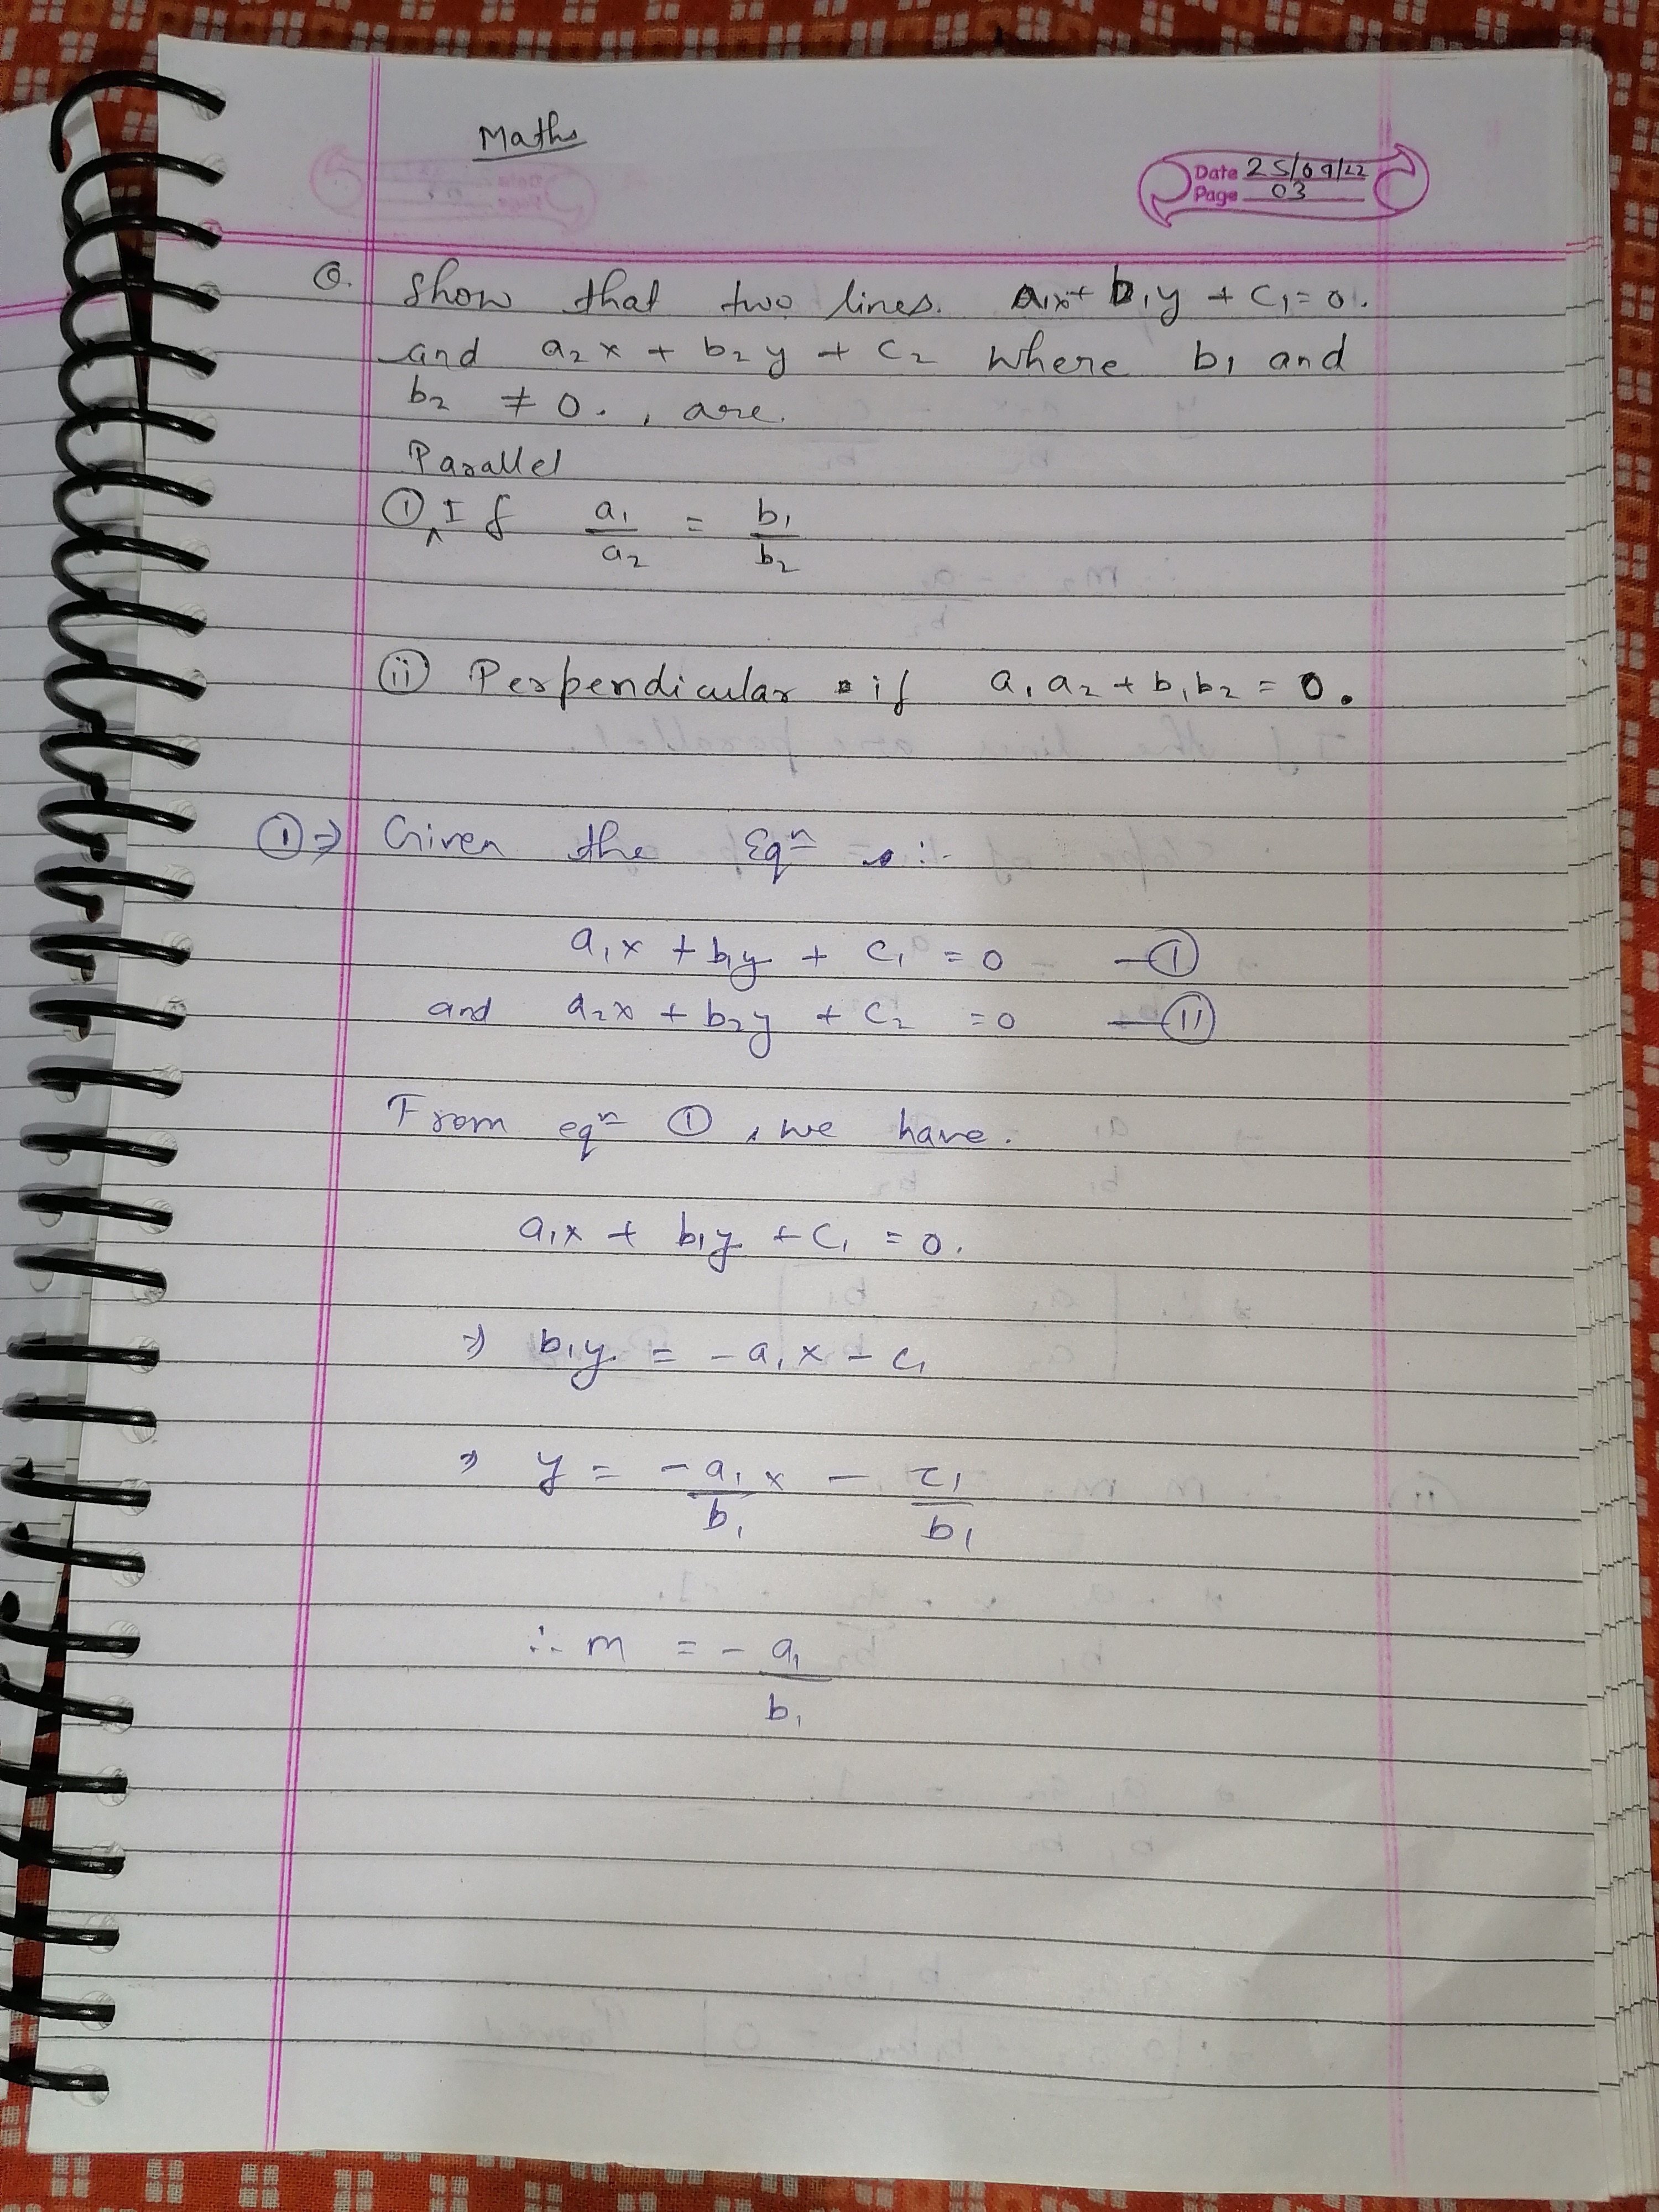 Maths
Date 25/09/22
Page 03
Q. Show that two lines. a₁x + b₁y + c₁ = 0.
and a₂x + b₂y + c₂ where b₁ and
b₂ ≠ 0. , are.
Parallel
① ^ If a₁/a₂ = b₁/b₂
ⅱ Perpendicular if a₁a₂ + b₁b₂ = 0.
① ⇒ Given the Eqⁿ :-
a₁x + b₁y + c₁ = 0 —Ⓘ
and a₂x + b₂y + c₂ = 0 —Ⅱ
From eqⁿ ①, we have.
a₁x + b₁y + c₁ = 0.
⇒ b₁y = -a₁x - c₁
⇒ y = -a₁/b₁ x - c₁/b₁
∴ m = - a₁/b₁